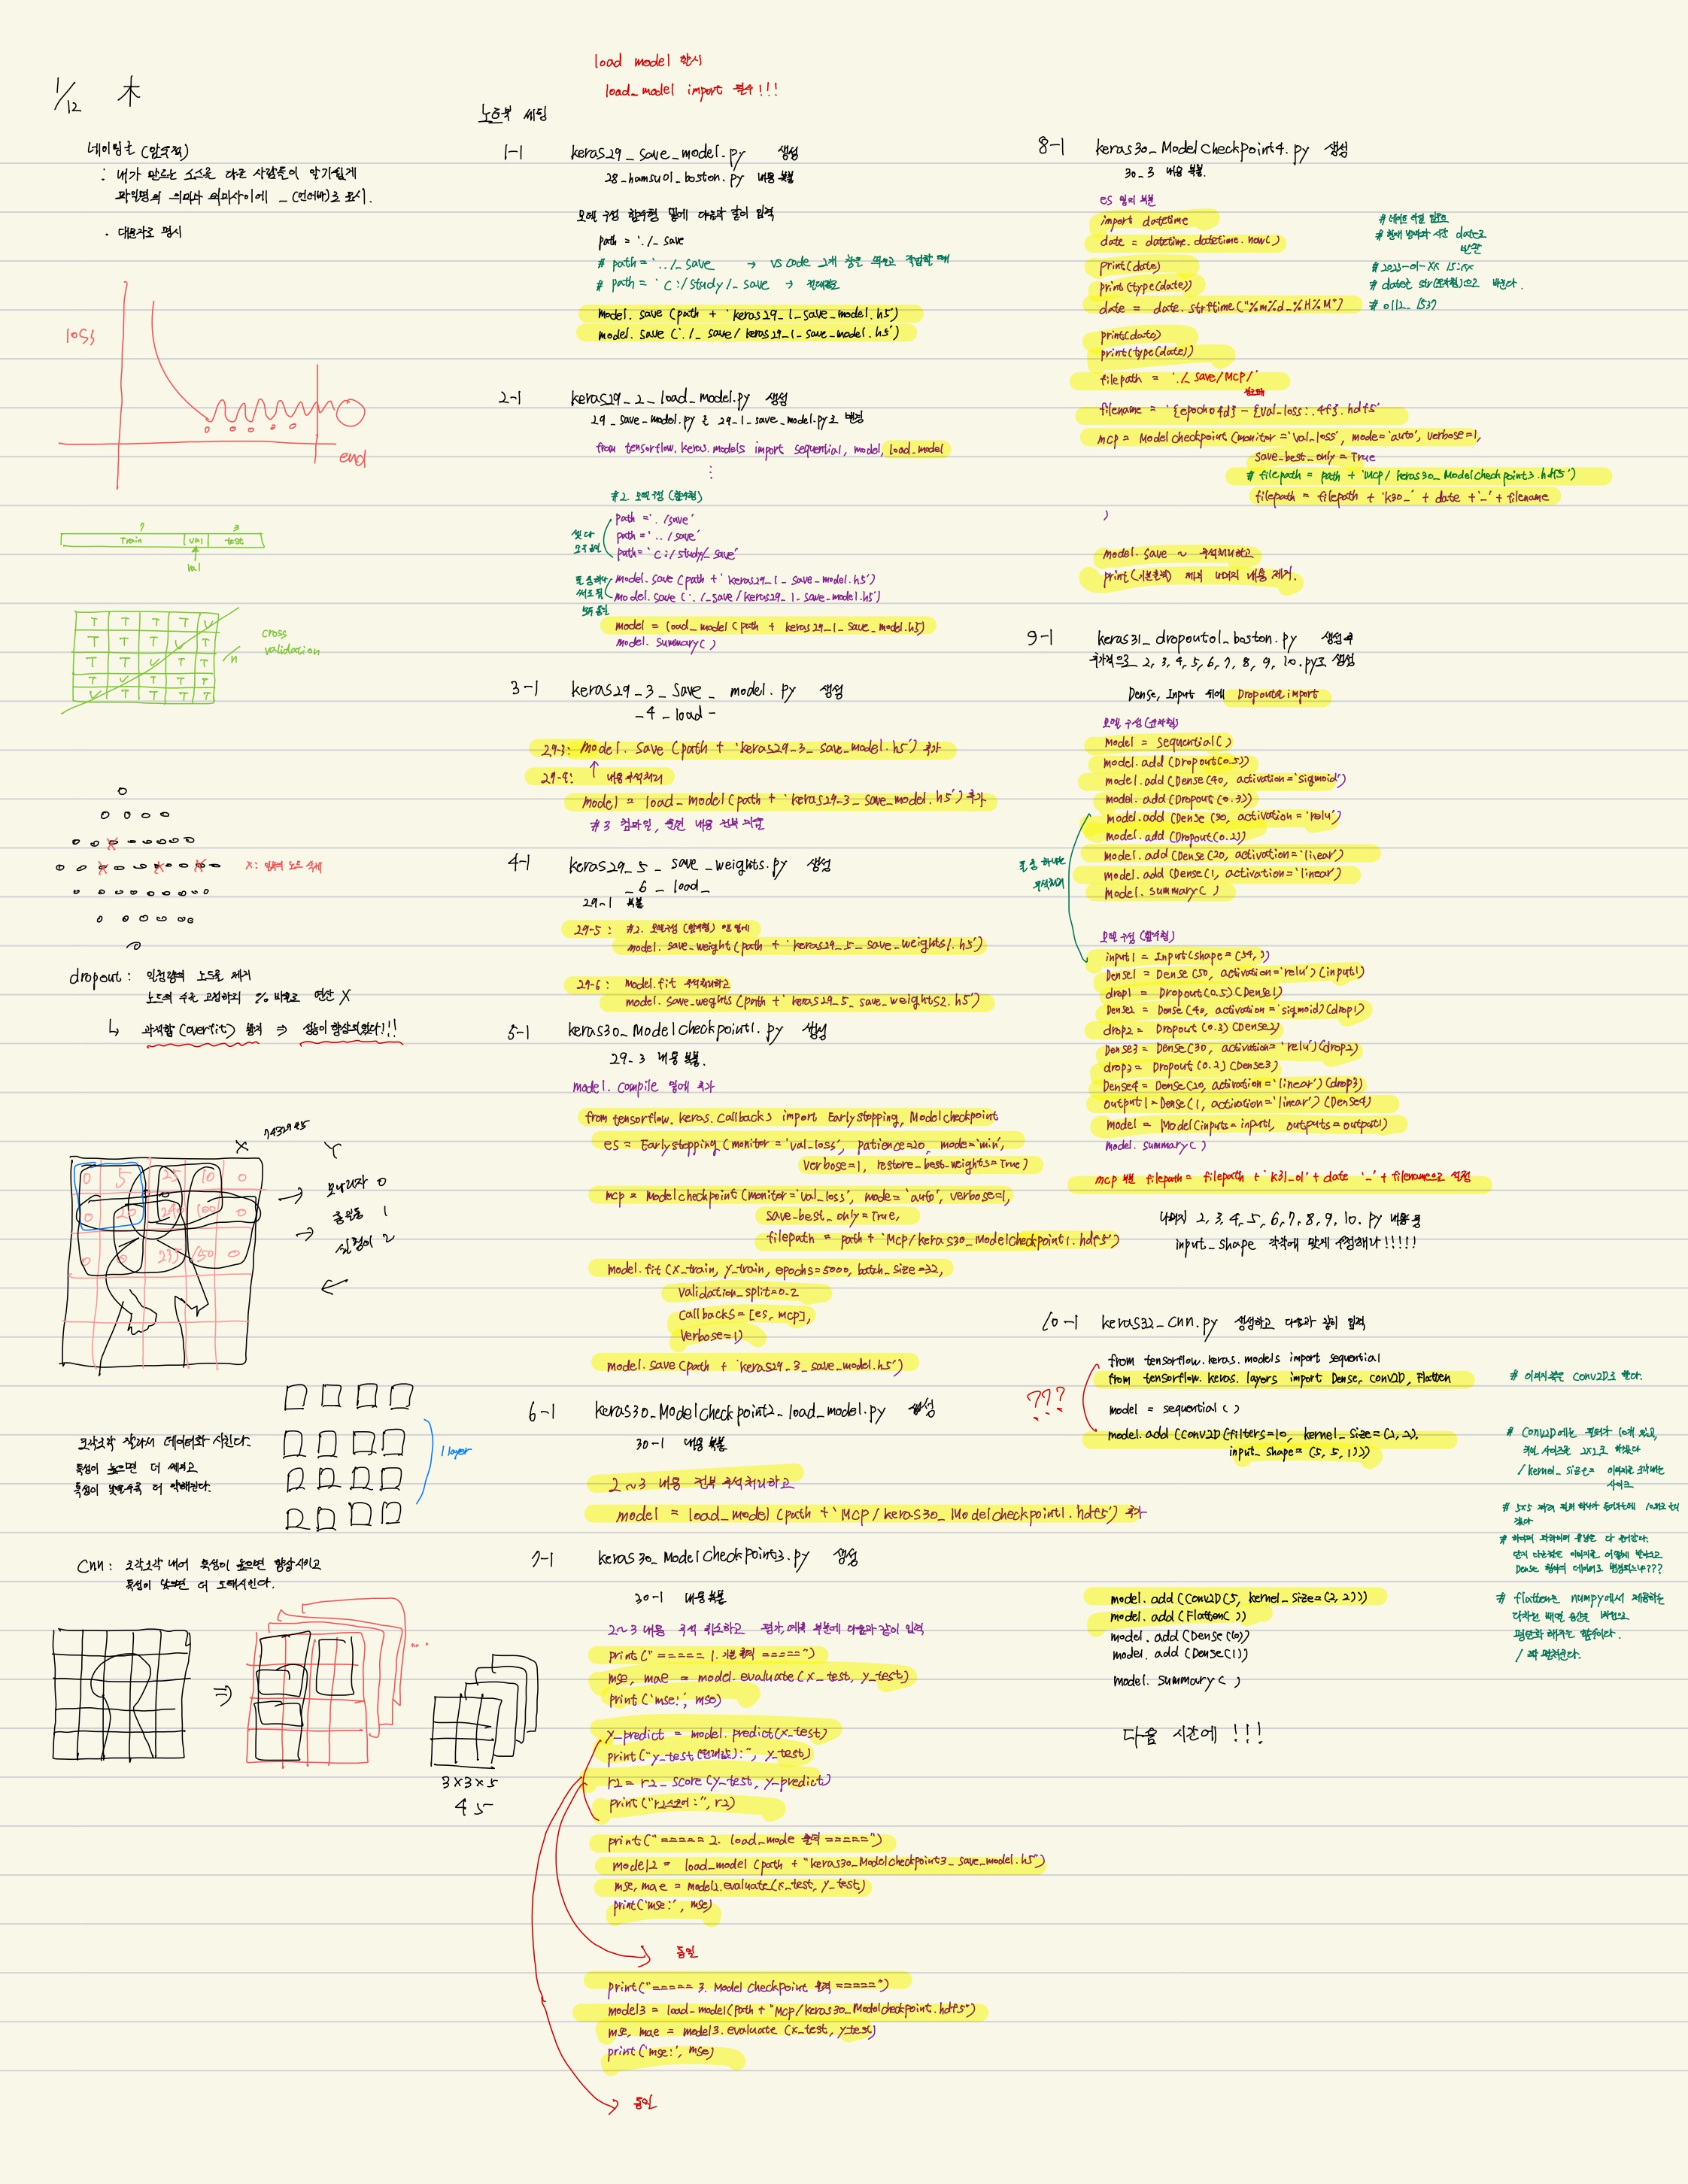 1/12 木
네이밍룰 (암묵적)
: 내가 만드는 소스를 다른 사람들이 알기쉽게
파일명의 의미와 의미사이에 _ (언더바)로 표시.
· 대문자로 명시
loss
end
7 3
Train val test
val
T T T T V
T T T V T
T T V T T
T V T T T
V T T T T
/n
cross
validation
X: 노드 삭제
dropout: 일정량의 노드를 제거
노드의 수는 고정하되 % 비율로 연산 X
↳ 과적합 (overfit) 방지 ⇒ 성능이 향상되었다!!!
X Y
0 5 25 10 0
0 20 240 100 0
0 0 235 150 0
→ 모나리자 0
→ 1
2
←
1 layer
조각조각 잘라서 데이터화 시킨다.
특성이 높으면 더 쎄지고
특성이 낮을수록 더 약해진다.
Cnn: 조각조각 내어 특성이 높으면 향상시키고
특성이 낮으면 더 도태시킨다.
⇒
...
3×3×5
45
load model 할시
load_model import 필수!!!
노트북 세팅
1-1 keras29_save_model.py 생성
28_hamsu01_boston.py 내용 복붙
모델 구성 함수형 밑에 다음과 같이 입력
path = './_save
# path = '../_save → VS code
# path = 'C:/study/_save →
model.save (path + 'keras29_1_save_model.h5')
model.save ('./_save/keras29_1_save_model.h5')
2-1 keras29_2_load_model.py 생성
29_save_model.py를 29_1_save_model.py로 변경
from tensorflow.keras.models import sequential, model, load_model
⋮
#2. 모델구성 (함수형)
path = './save'
path = '../save'
path = 'C:/study/_save'
model.save (path + 'keras29_1_save_model.h5')
model.save ('./_save/keras29_1_save_model.h5')
model = load_model (path + keras29_1_save_model.h5)
model.summary( )
3-1 keras29_3_save_model.py 생성
_4_load_
29-3: model.save (path + 'keras29_3_save_model.h5') 추가
29-4: ↑ 내용주석처리
model = load_model (path + 'keras29_3_save_model.h5') 추가
#3 컴파일, 훈련 내용 전부 위로
4-1 keras29_5_save_weights.py 생성
_6_load_
29-1 복붙
29-5: #2. 모델구성 (함수형) 맨 밑에
model.save_weight (path + 'keras29_5_save_weights1.h5')
29-6: model.fit 주석처리하고
model.save_weghts (path + 'keras29_5_save_weights2.h5')
5-1 keras30_ModelCheckpoint1.py 생성
29-3 내용 복붙.
model.compile 밑에 추가
from tensorflow.keras.callbacks import Earlystopping, Modelcheckpoint
es = Earlystopping (monitor = 'val_loss', patience=20, mode='min',
verbose=1, restore_best_weights=True)
mcp = Modelcheckpoint (monitor = 'val_loss', mode = 'auto', verbose=1,
save_best_only=True,
filepath = path + 'Mcp/keras30_Modelcheckpoint1.hdf5')
model.fit (x_train, y_train, epochs=5000, batch_size=32,
validation_split=0.2
callbacks = [es, mcp],
verbose=1)
model.save (path + 'keras29_3_save_model.h5')
6-1 keras30_ModelCheckpoint2_load_model.py 생성
30-1 내용 복붙
2~3 내용 전부 주석처리하고
model = load_model (path + 'Mcp/keras30_Modelcheckpoint1.hdf5') 추가
7-1 keras30_Modelcheckpoint3.py 생성
30-1 내용복붙
2~3 내용 주석 취소하고 평가, 예측 부분에 다음과 같이 입력
print(" ===== 1. 기본 출력 =====")
mse, mae = model.evaluate (x_test, y_test)
print('mse:', mse)
y_predict = model.predict (x_test)
print("y_test (원래값):", y_test)
r2 = r2_score (y_test, y_predict)
print("r2스코어:", r2)
print(" ===== 2. load_mode 출력 =====")
model2 = load_model (path + "keras30_Modelcheckpoint3_save_model.h5")
mse, mae = model2.evaluate (x_test, y_test)
print('mse:', mse)
동일
print("===== 3. Model checkpoint 출력 =====")
model3 = load_model (path + "Mcp/keras30_Modelcheckpoint.hdf5")
mse, mae = model3.evaluate (x_test, y_test)
print('mse:', mse)
동일
8-1 keras30_ModelCheckpoint4.py 생성
30_3 내용 복붙.
es 밑의 부분
import datetime # 데이트 타임
date = datetime.datetime.now( ) # 현재 날짜와 시간 date로 반환
print(date) # 2023-01-XX 15:XX
print(type(date)) # date는 str(문자형)으로 바꾼다.
date = date.strftime("%m%d_%H%M") # 0112_1537
print(date)
print(type(date))
filepath = './_save/MCP/'
filename = '{epoch:04d}-{val_loss:.4f}.hdf5'
mcp = Modelcheckpoint (monitor = 'val_loss', mode='auto', verbose=1,
save_best_only=True
# filepath = path + 'MCP/keras30_Modelcheckpoint3.hdf5')
filepath = filepath + 'k30_' + date + '_' + filename
)
model.save ~ 주석처리하고
print(기본출력) 제외 나머지 내용 제거.
9-1 keras31_dropout01_boston.py 생성 후
추가적으로 2, 3, 4, 5, 6, 7, 8, 9, 10.py도 생성
Dense, Input 뒤에 Dropout을 import
모델 구성 (순차형)
Model = sequential( )
model.add (Dropout(0.5))
model.add (Dense (40, activation='sigmoid')
model.add (Dropout (0.3))
model.add (Dense (30, activation='relu')
model.add (Dropout(0.2))
model.add (Dense (20, activation='linear')
model.add (Dense (1, activation='linear')
Model.summary( )
둘 중 하나는
주석처리
모델 구성 (함수형)
input1 = Input (shape = (34, ))
Dense1 = Dense (50, activation='relu') (input1)
drop1 = Dropout (0.5) (Dense1)
Dense2 = Dense (40, activation='sigmoid) (drop1)
drop2 = Dropout (0.3) (Dense2)
Dense3 = Dense (30, activation='relu') (drop2)
drop3 = Dropout (0.2) (Dense3)
Dense4 = Dense (20, activation='linear') (drop3)
output1 = Dense (1, activation='linear') (Dense4)
model = Model (inputs = input1, outputs = output1)
model.summary( )
mcp 부분 filepath = filepath + 'k31_01' + date '_' + filename으로 수정
나머지 2, 3, 4, 5, 6, 7, 8, 9, 10.py 내용 중
input_shape 각각에 맞게 수정해라!!!!!
10-1 keras32_cnn.py 생성하고 다음과 같이 입력
from tensorflow.keras.models import sequential
from tensorflow.keras.layers import Dense, conv2D, Flatten # 이미지쪽은 Conv2D로 한다.
???
model = sequential( )
model.add (conv2D (filters=10, kernel_size = (2, 2),
input_shape = (5, 5, 1)))
# Conv2D에는 필터가 10개 있고,
커널 사이즈를 2×2로 하겠다
/ kernel_size = 이미지를 조각내는
사이즈
# 5×5
#
Dense 형태의 데이터로 변경되느냐???
model.add (Conv2D(5, kernel_size = (2, 2)))
model.add (Flatten( ))
model.add (Dense (10))
model.add (Dense (1))
model.summary( )
# flatten은 numpy에서 제공하는
다차원 배열 공간을 1차원으로
평탄화 해주는 함수이다.
/ 쫙 펴준다.
다음 시간에 !!!